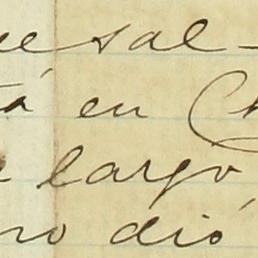 ue sal-
tá en Ch
largo,
ro dió